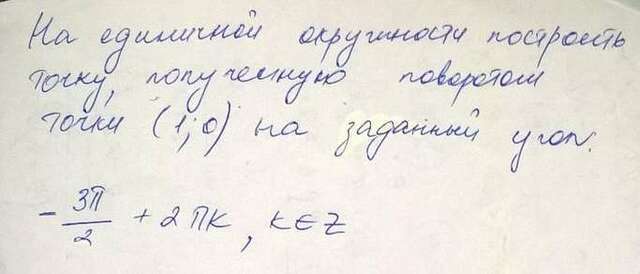 На единичной окружности построить
точку, полученную поворотом
точки (1;0) на заданный угол.
- 3π/2 + 2πk, k∈Z